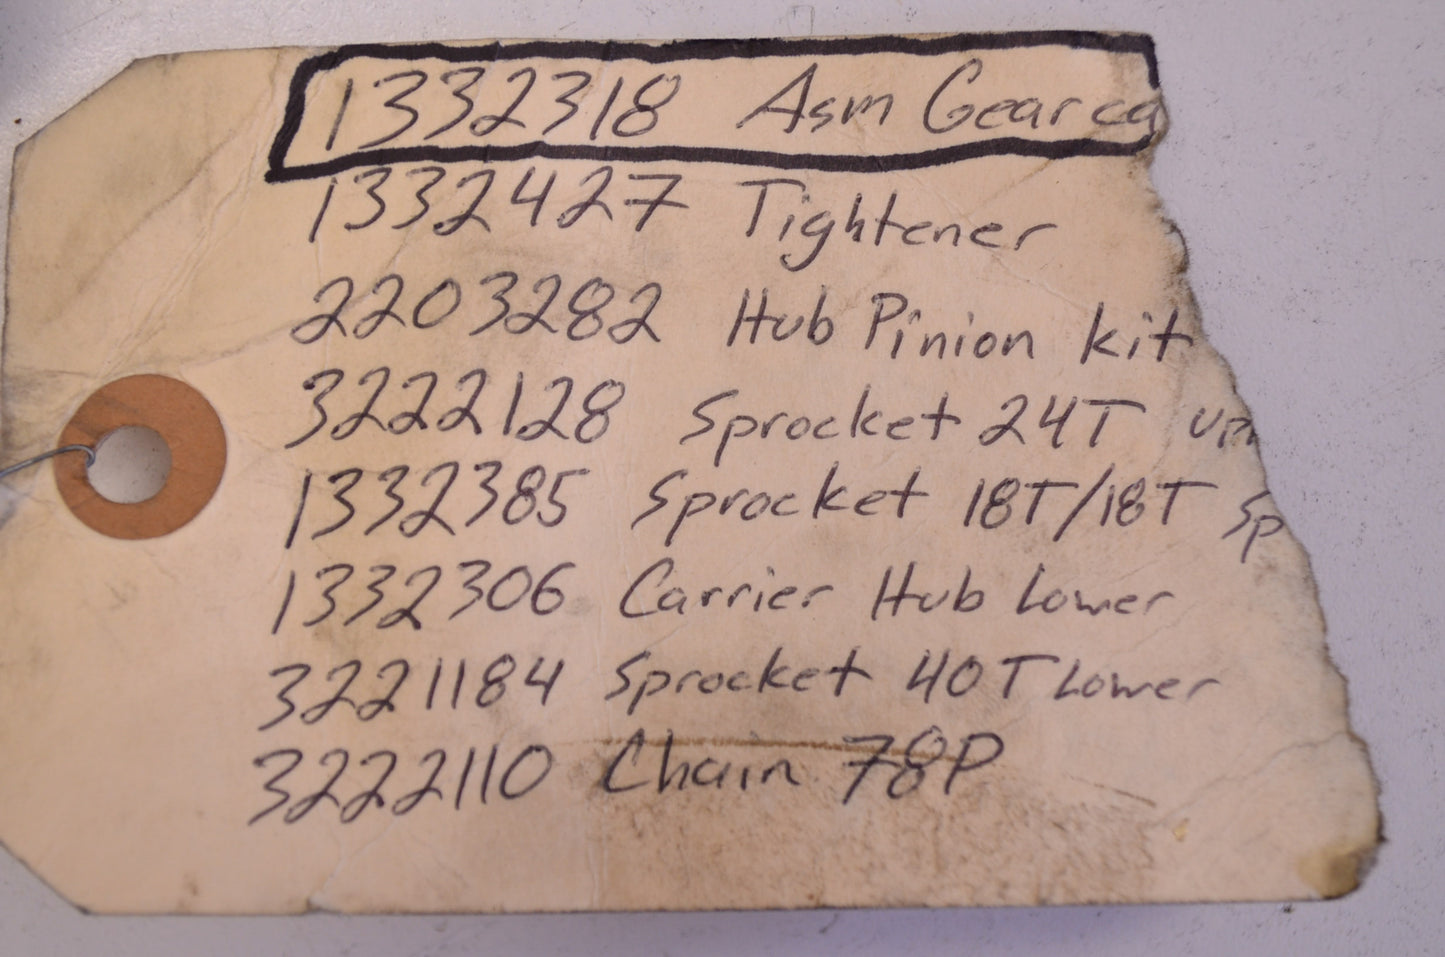 1332318 Asm Gearca
1332427 Tightener
2203282 Hub Pinion kit
3222128 Sprocket 24T
1332385 Sprocket 18T/18T Sp
1332306 Carrier Hub Lower
3221184 Sprocket 40T Lower
3222110 Chain 78P